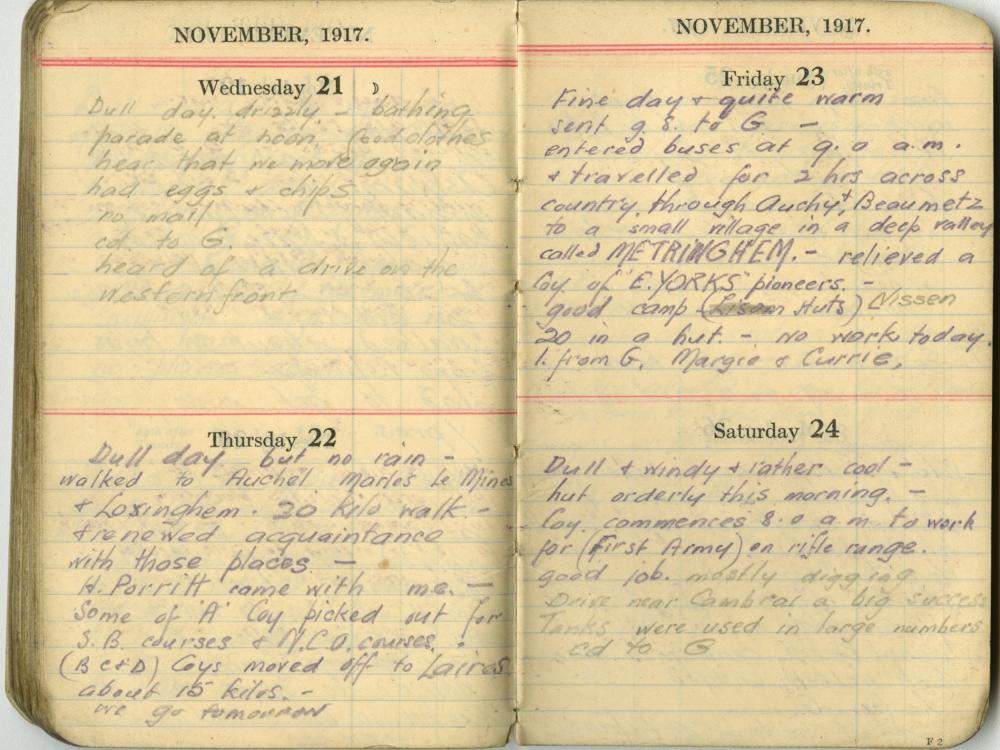 NOVEMBER, 1917.
Wednesday 21
Dull day. drizzly - bathing
parade at noon. Good clothes
hear that we move again
had eggs & chips
no mail
cd. to G.
heard of a drive on the
western front
Thursday 22
Dull day but no rain -
walked to Auchel Marles Le Mines
& Losinghem. 20 kilo walk. -
& renewed acquaintance
with those places. -
H. Porritt came with me. -
Some of 'A' Coy picked out for
S.B. courses & N.C.O. courses.
(B C & D) Coys moved off to Laires
about 15 kilos. -
we go tomorrow
NOVEMBER, 1917.
Friday 23
Fine day & quite warm
sent g.s. to G -
entered buses at 9.0 a.m.
& travelled for 2 hrs across
country, through Auchy, Beaumetz
to a small village in a deep valley
called METRINGHEM. - relieved a
Coy of "E. YORKS" pioneers. -
good camp ( Huts) Nissen
20 in a hut. - no work today.
1. from G. Margie & Currie,
Saturday 24
Dull & windy & rather cool -
hut orderly this morning. -
Coy. commences 8.0 a.m. to work
for (First Army) on rifle range.
good job. mostly digging
Drive near Cambrai a big success
Tanks were used in large numbers
cd to G
F 2